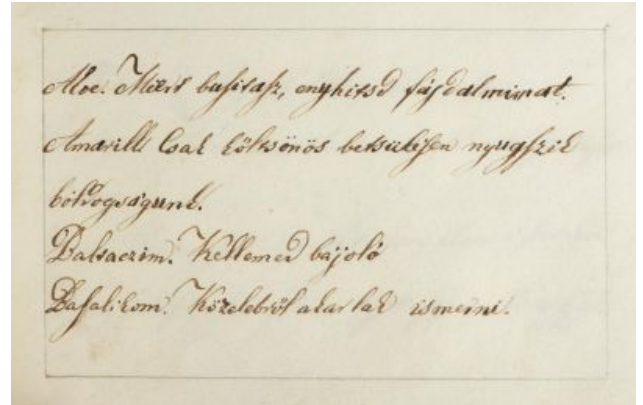 Aloe. Miért busitasz, enyhitsd fájdalmimat.
Amarill. Csak költsönös betsülésen nyugszik
bóldogságunk.
Balsaczim. Kellemed bájoló
Basalikom. Közelebröl akarlak ismerni.